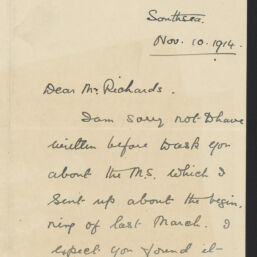 Southsea.
Nov. 10. 1914.
Dear Mr Richards.
I am sorry not to have
written before to ask you
about the M.S. which I
sent up about the begin-
ning of last March. I
expect you found it